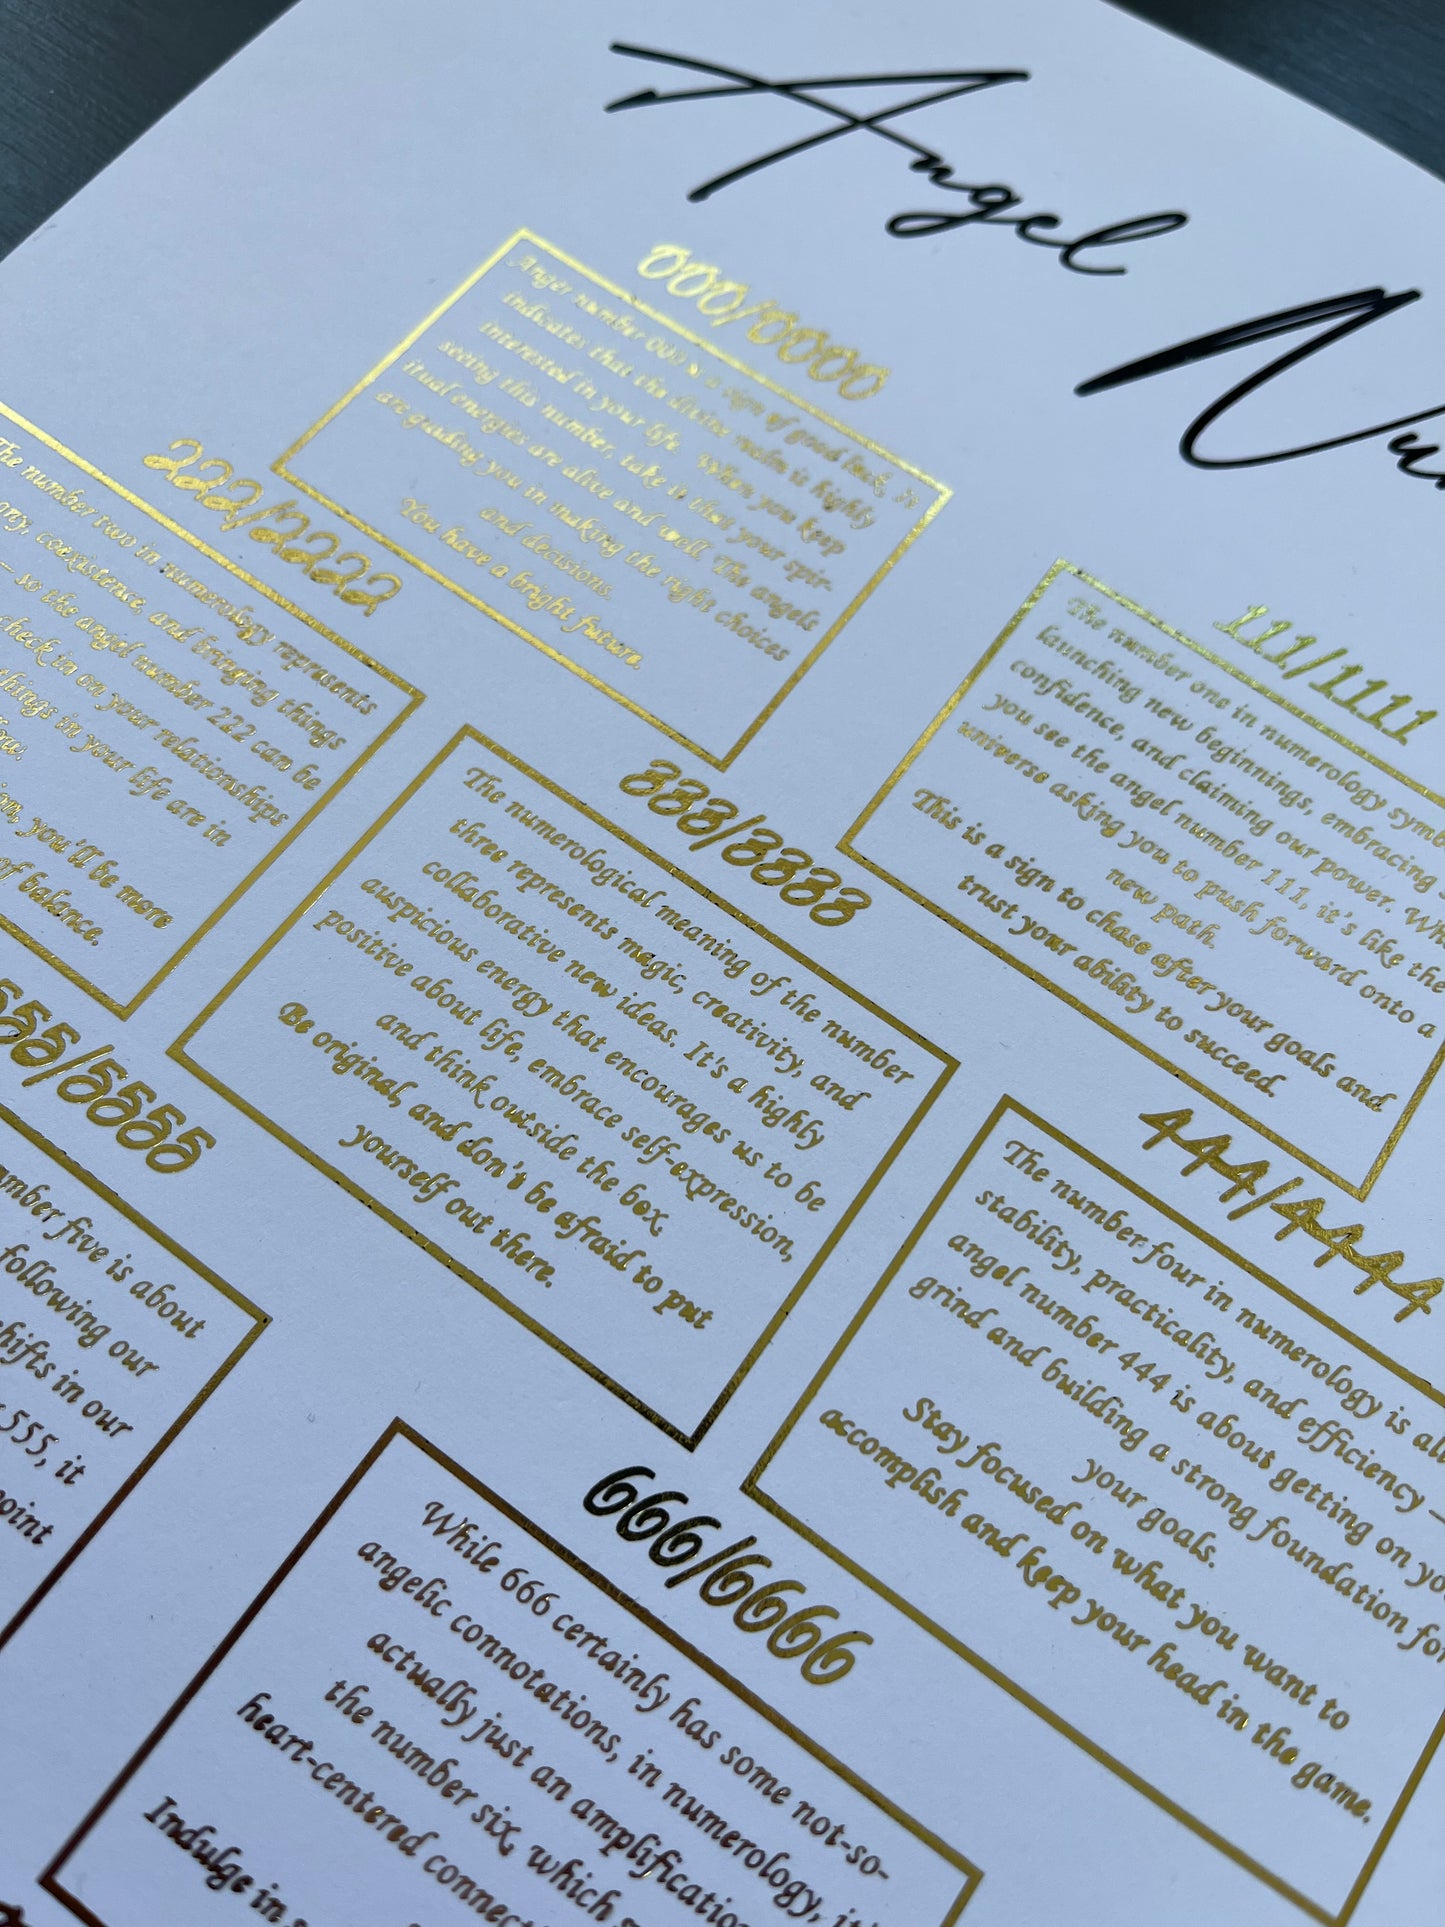 Angel Nu
000/0000
Angel number 000 is a sign of good luck, it
indicates that the divine realm is highly
interested in your life. When you keep
seeing this number, take it that your spir-
itual energies are alive and well. The angels
are guiding you in making the right choices
and decisions.
You have a bright future.
111/1111
The number one in numerology symb
launching new beginnings, embracing
confidence, and claiming our power. Wh
you see the angel number 111, it's like the
universe asking you to push forward onto a
new path.
This is a sign to chase after your goals and
trust your ability to succeed.
222/2222
The number two in numerology represents
ony, coexistence, and bringing things
— so the angel number 222 can be
check in on your relationships
things in your life are in
ow.
ion, you'll be more
of balance.
333/3333
The numerological meaning of the number
three represents magic, creativity, and
collaborative new ideas. It's a highly
auspicious energy that encourages us to be
positive about life, embrace self-expression,
and think outside the box
Be original, and don't be afraid to put
yourself out there.
444/4444
The number four in numerology is all
stability, practicality, and efficiency —
angel number 444 is about getting on yo
grind and building a strong foundation for
your goals.
Stay focused on what you want to
accomplish and keep your head in the game.
555/5555
mber five is about
following our
shifts in our
555, it
point
666/6666
While 666 certainly has some not-so-
angelic connotations, in numerology, it'
actually just an amplification
the number six, which
heart-centered connect
Indulge in